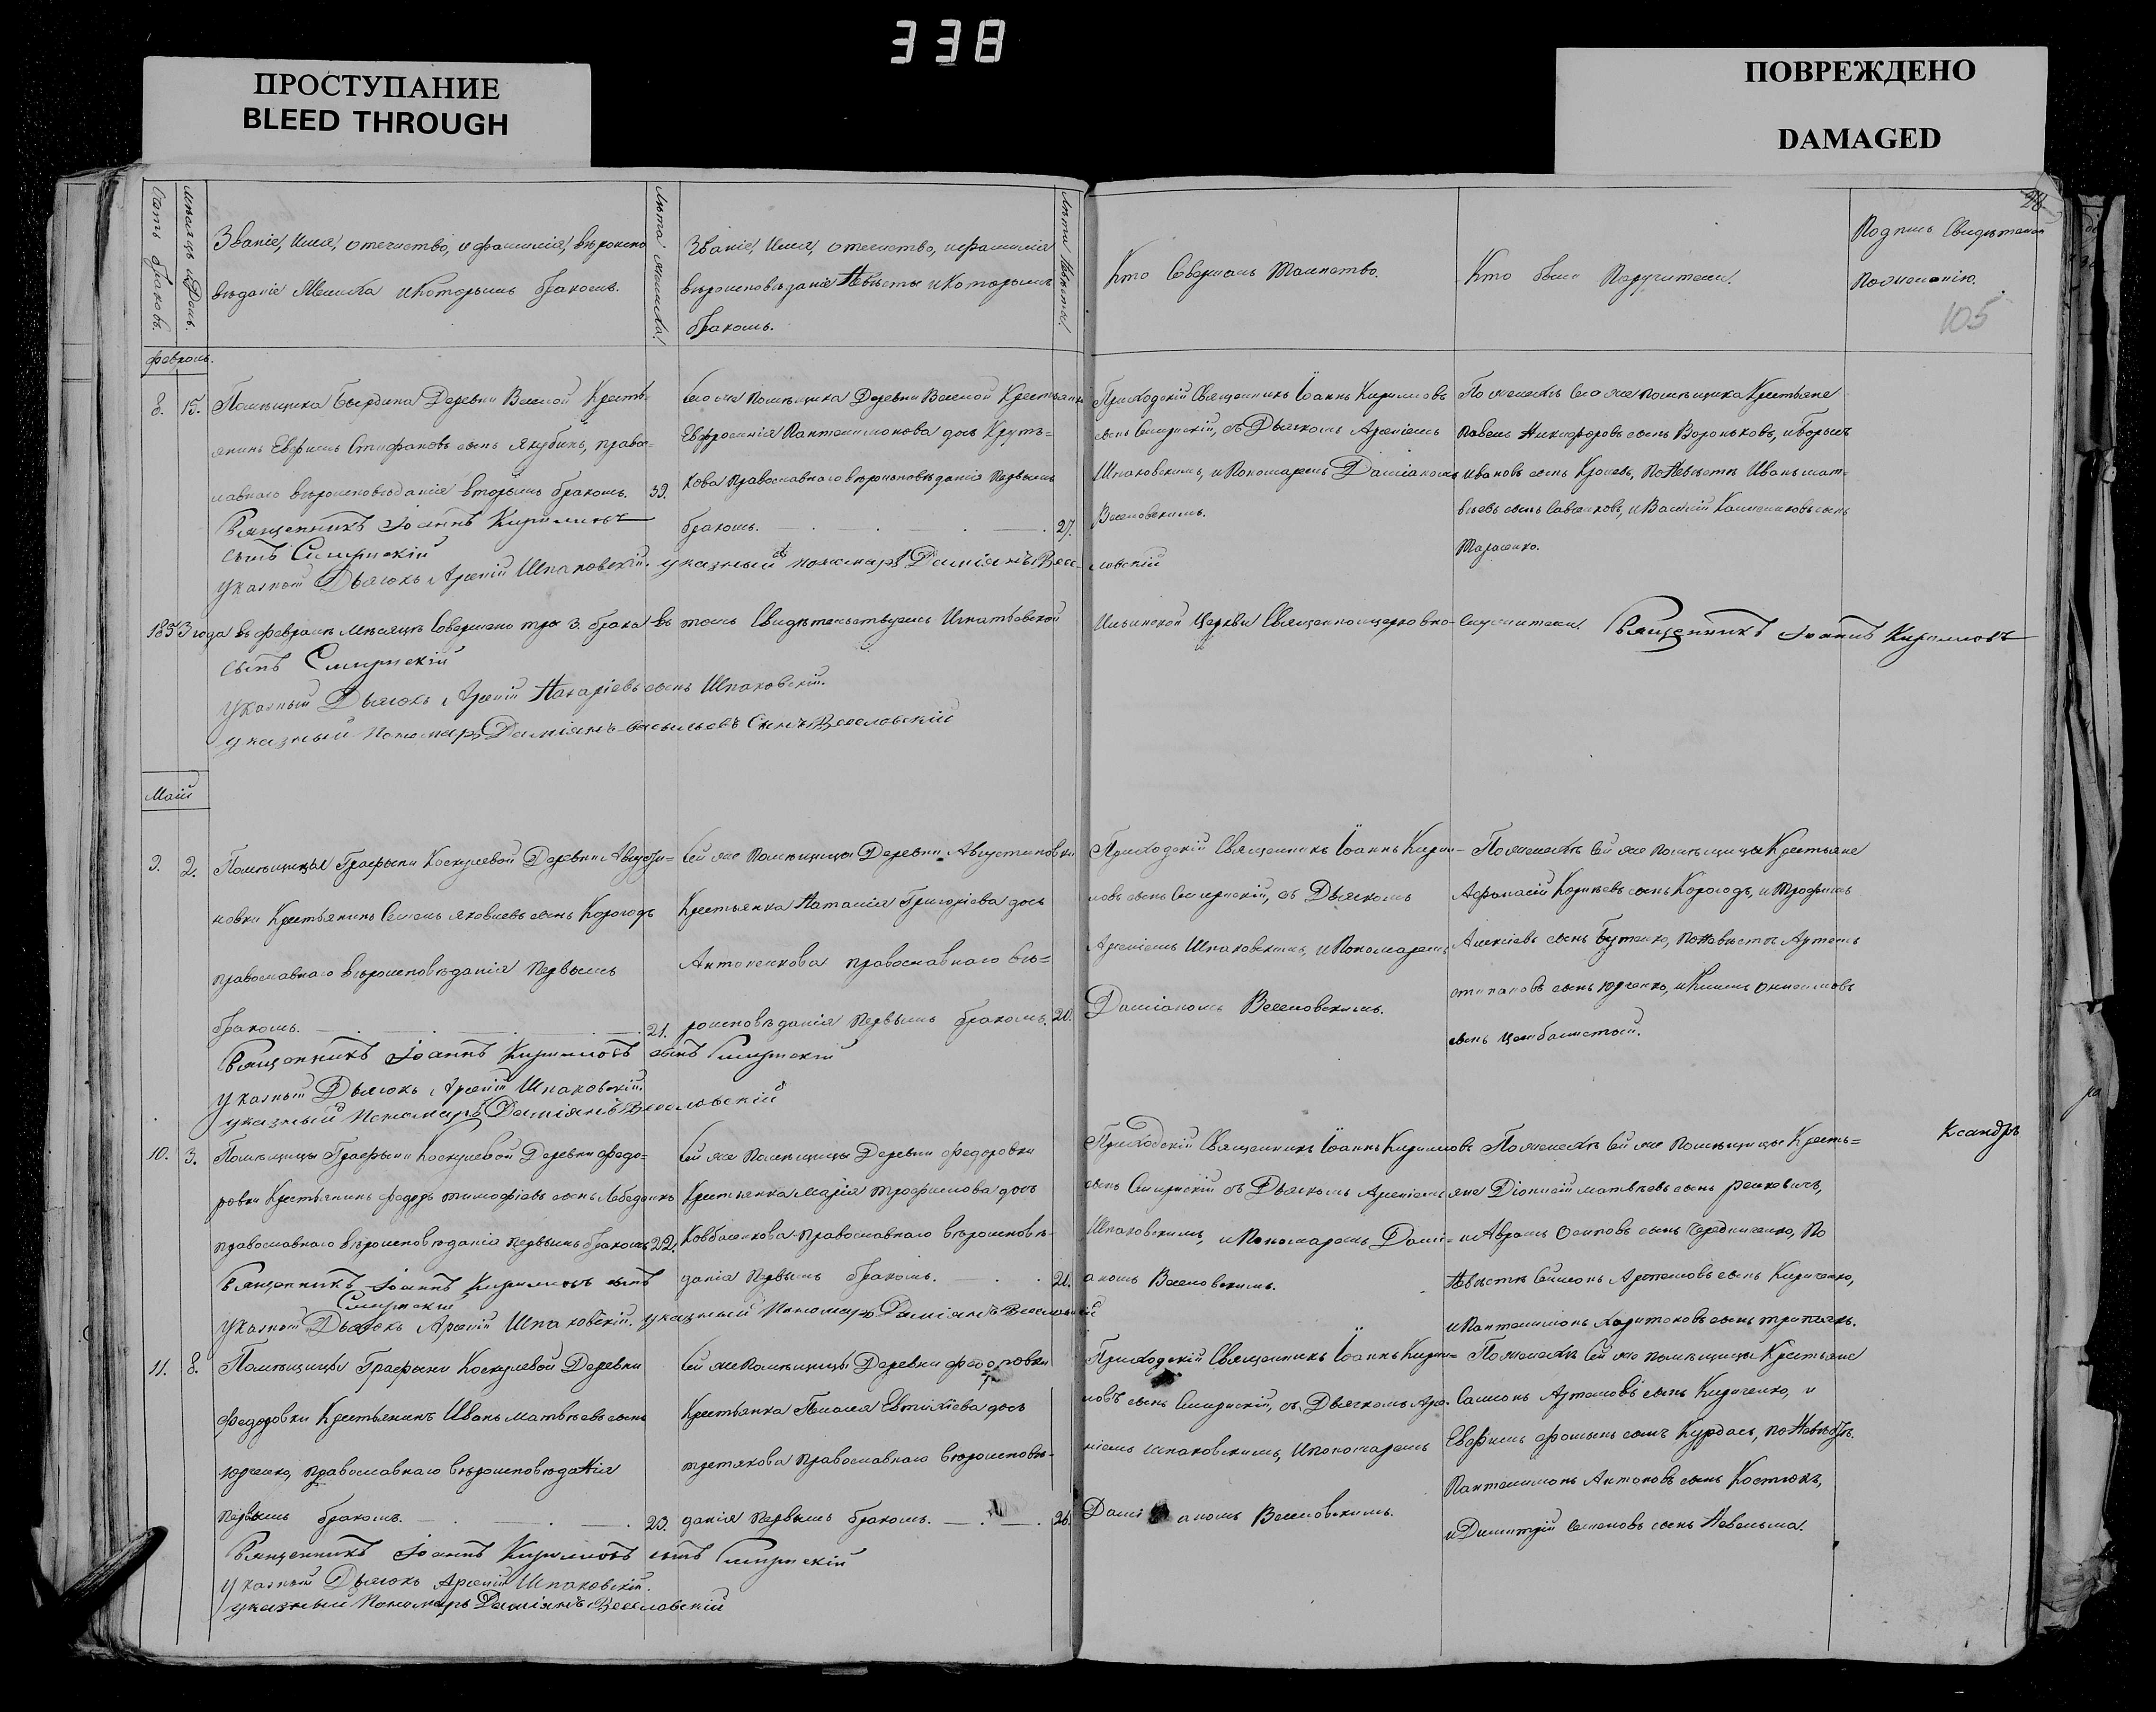 338
ПРОСТУПАНИЕ
BLEED THROUGH
ПОВРЕЖДЕНО
DAMAGED
105
Счетъ браковъ.
Мѣсяцъ и День.
Званіе, Имя, отечество, и фамилія, вѣроиспо
вѣданіе Жениха и которымъ бракомъ.
Лѣта жениха.
Званіе, Имя, отечество, и фамилія
вѣроисповѣданіе Невѣсты и которымъ
бракомъ.
Лѣта Невѣсты.
Кто Совершалъ Таинство.
Кто были Поручители.
Подпись Свидѣтелей
По желанію.
Февраль.
8.
15.
Помѣщика Деревни Веселой Кресть-
янинъ Ефимъ Стефановъ сынъ Якубинъ, право-
славнаго вѣроисповѣданія вторымъ бракомъ.
39.
Священникъ Іоаннъ Кириловъ
сынъ Смирнскій
Указный Дьячокъ Арсеній Шпаковскій. указный пономаръ Даміянъ Весе-
ловскій
Сего же Помѣщика Деревни Веселой Крестьянка
Евфросинія Пантелимонова дочь Крутъ-
кова православнаго вѣроисповѣданія Первымъ
бракомъ.
27.
Приходскій Священникъ Іоаннъ Кириловъ
сынъ Смирнскій, съ Дьячкомъ Арсеніемъ
Шпаковскимъ, и Пономаремъ Даміаномъ
Веселовскимъ.
По женихѣ Сего же помѣщика Крестьяне
Павелъ Никифоровъ сынъ Вороньковъ, и Борисъ
Ивановъ сынъ Кролевъ, по Невѣстѣ Иванъ мат-
вѣевъ сынъ Савенковъ, и Василій сынъ
Тарасенко.
1853 года въ февралѣ Мѣсяцѣ Совершено три 3. брака въ томъ Свидѣтельствуемъ Игнатьевской Ильинской Церкви Священноцерковно-служители Священникъ Іоаннъ Кириловъ
сынъ Смирнскій
Указный Дьячокъ Арсеній Макаріевъ сынъ Шпаковскій.
указный Пономаръ Даміянъ васильевъ Сынъ Веселовскій
Май
9.
2.
Помѣщицы Графыни Коскулевой Деревни Августи-
новки Крестьянинъ Семенъ яковлевъ сынъ Корогодъ
православнаго вѣроисповѣданія Первымъ
бракомъ.
21.
Священникъ Іоаннъ Кириловъ сынъ Смирнскій
указный Дьячокъ Арсеній Шпаковскій.
указный Пономаръ Даміянъ Веселовскій
Сей же Помѣщицы Деревни Августиновки
Крестьянка Наталія Григоріева дочь
Антоненкова православнаго вѣ-
роисповѣданія Первымъ бракомъ.
20.
Приходскій Священникъ Іоаннъ Кири-
ловъ сынъ Смирнскій, съ Дьячкомъ
Арсеніемъ Шпаковскимъ, и Пономаремъ
Даміаномъ Веселовскимъ.
По женихѣ Сей же помѣщицы Крестьяне
Афанасій Корнѣевъ сынъ Корогодъ, и Трофимъ
Алексіевъ сынъ Бутенко, по Невѣстѣ Артемъ
степановъ сынъ Юрченко, и Климъ онисимовъ
сынъ Цимбалистой.
10.
3.
Помѣщицы Графыни Коскулевой Деревни федо-
ровки Крестьянинъ федоръ тимофіевъ сынъ Лебеденко
православнаго вѣроисповѣданія первымъ бракомъ
22.
Священникъ Іоаннъ Кириловъ сынъ
Смирнскій
указный Дьячокъ Арсеній Шпаковскій. указный Пономаръ Даміянъ Веселовскій
Сей же Помѣщицы Деревни федоровки
Крестьянка Марія трофимова дочь
Ковбасенкова православнаго вѣроисповѣ-
данія Первымъ бракомъ.
21.
Приходскій Священникъ Іоаннъ Кириловъ
сынъ Смирнскій съ Дьячкомъ Арсеніемъ
Шпаковскимъ, и Пономаремъ Дамі-
аномъ Веселовскимъ.
По женихѣ Сей же помѣщицы Кресть=
яне Діонисій матвѣевъ сынъ
и Аврамъ Осиповъ сынъ Чередниченко, По
Невѣстѣ Самсонъ Артемовъ сынъ Кириченко,
и Пантелимонъ Харитоновъ сынъ
ксандръ
11.
8.
Помѣщицы Графыни Коскулевой Деревни
Федоровки Крестьянинъ Иванъ матвѣевъ сынъ
Юрченко, православнаго вѣроисповѣданія
Первымъ бракомъ.
23.
Священникъ Іоаннъ Кириловъ сынъ Смирнскій
указный Дьячокъ Арсеній Шпаковскій.
указный Пономаръ Даміянъ Веселовскій
Сей же Помѣщицы Деревни федоровки
Крестьянка Пелагея Евтихіева дочь
третякова православнаго вѣроисповѣ-
данія Первымъ бракомъ.
26.
Приходскій Священникъ Іоаннъ Кири=
ловъ сынъ Смирнскій, съ Дьячкомъ Арсе-
ніемъ шпаковскимъ, и пономаремъ
Даміаномъ Веселовскимъ.
По женихѣ Сей же помѣщицы Крестьяне
Самсонъ Артемовъ сынъ Кириченко, и
Ефимъ фоминъ сынъ Курдасъ, по Невѣстѣ
Пантелимонъ Антоновъ сынъ Костюкъ,
и Димитрій Семеновъ сынъ Невельма.